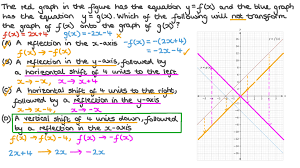 The red graph in the figure has the equation y=f(x) and the blue graph
has the equation y=g(x). Which of the following will not transform
the graph of f(x) onto the graph of g(x)?
f(x)=2x+4 g(x)=-2x-4
(A) A reflection in the x-axis -f(x)=-(2x+4)
f(x)→-f(x) =-2x-4
(B) A reflection in the y-axis, followed by
a horizontal shift of 4 units to the left
x→-x, x→x+4
(C) A horizontal shift of 4 units to the right,
followed by a reflection in the y-axis
x→x-4, x→-x
(D) A vertical shift of 4 units down, followed
by a reflection in the x-axis
f(x)→f(x)-4, f(x)→-f(x)
2x+4 → 2x → -2x